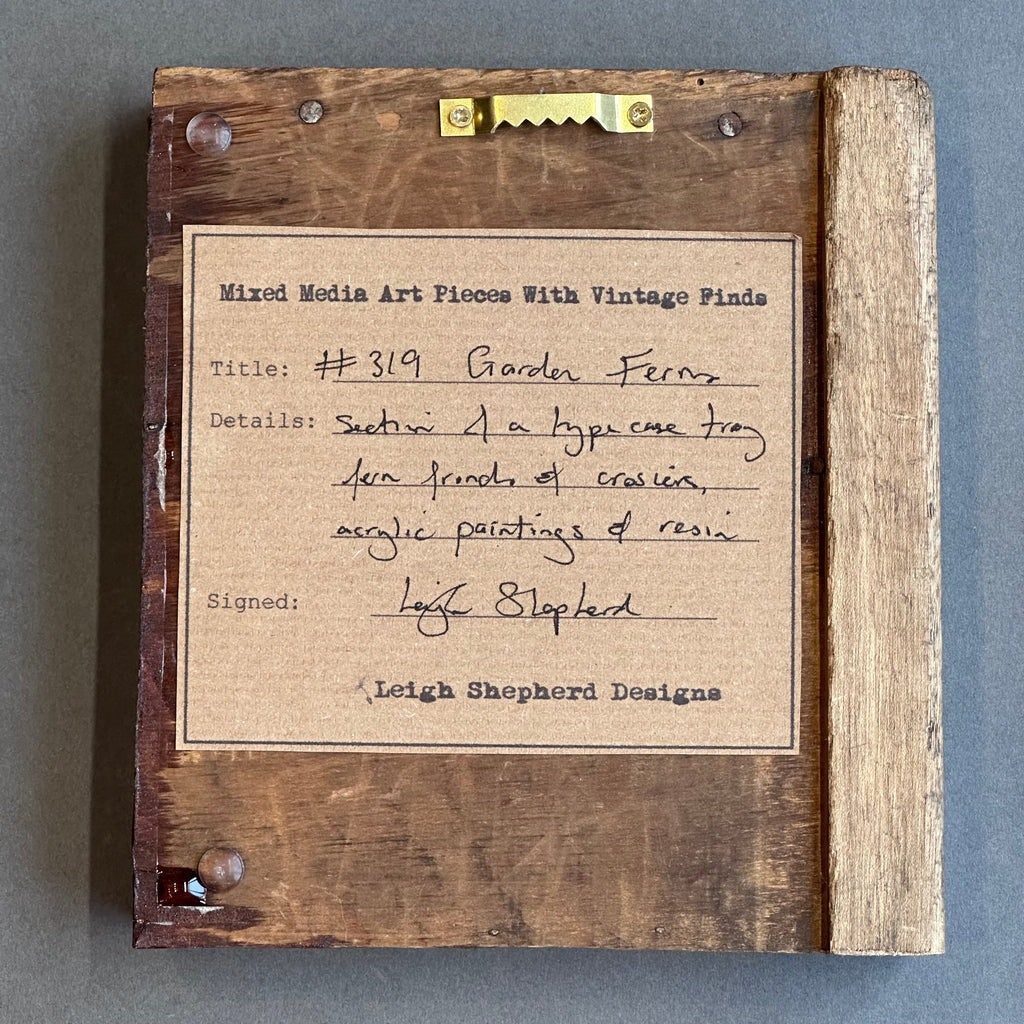 Mixed Media Art Pieces With Vintage Finds
Title: #319 Garden Ferns
Details: Section of a type case tray
fern fronds & crosiers,
acrylic paintings & resin
Signed: Leigh Shepherd
Leigh Shepherd Designs